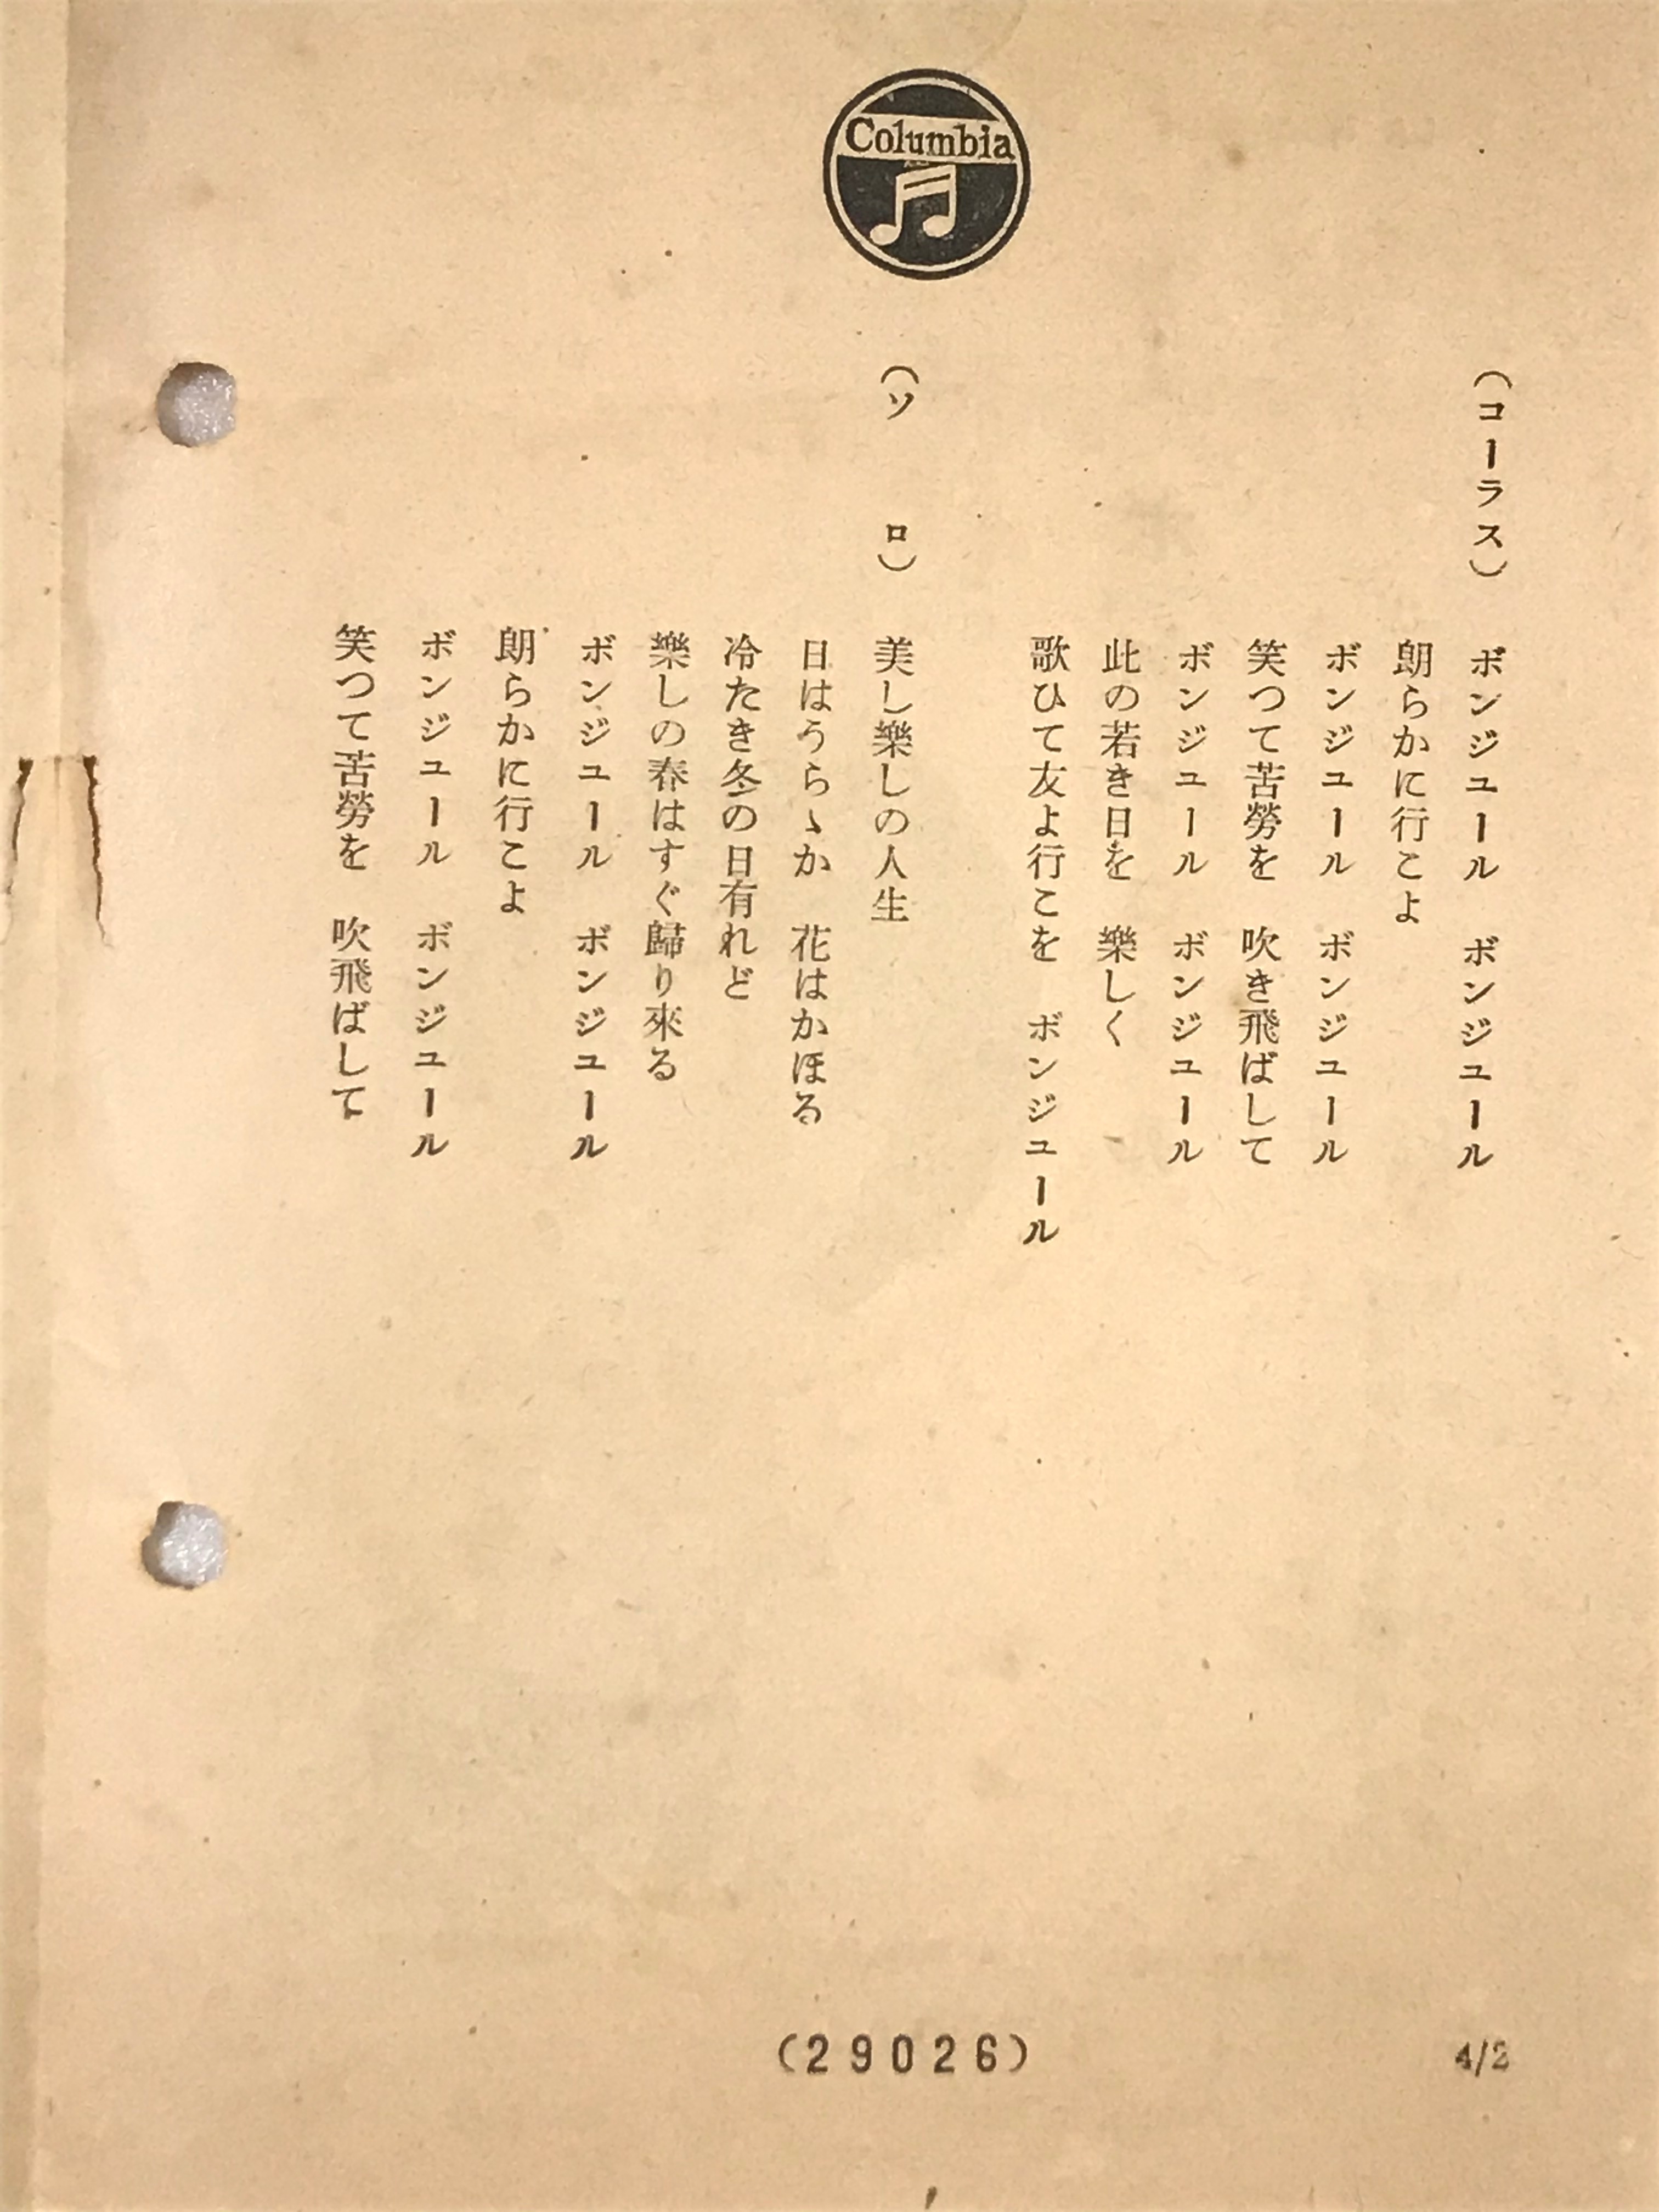 Columbia
（コーラス）　ボンジユール　ボンジユール
朗らかに行こよ
ボンジユール　ボンジユール
笑つて苦勞を　吹き飛ばして
ボンジユール　ボンジユール
此の若き日を　樂しく
歌ひて友よ行こを　ボンジユール
（ソロ）　美し樂しの人生
日はうらゝか　花はかほる
冷たき冬の日有れど
樂しの春はすぐ歸り來る
ボンジユール　ボンジユール
朗らかに行こよ
ボンジユール　ボンジユール
笑つて苦勞を　吹飛ばして
(29026)
4/2